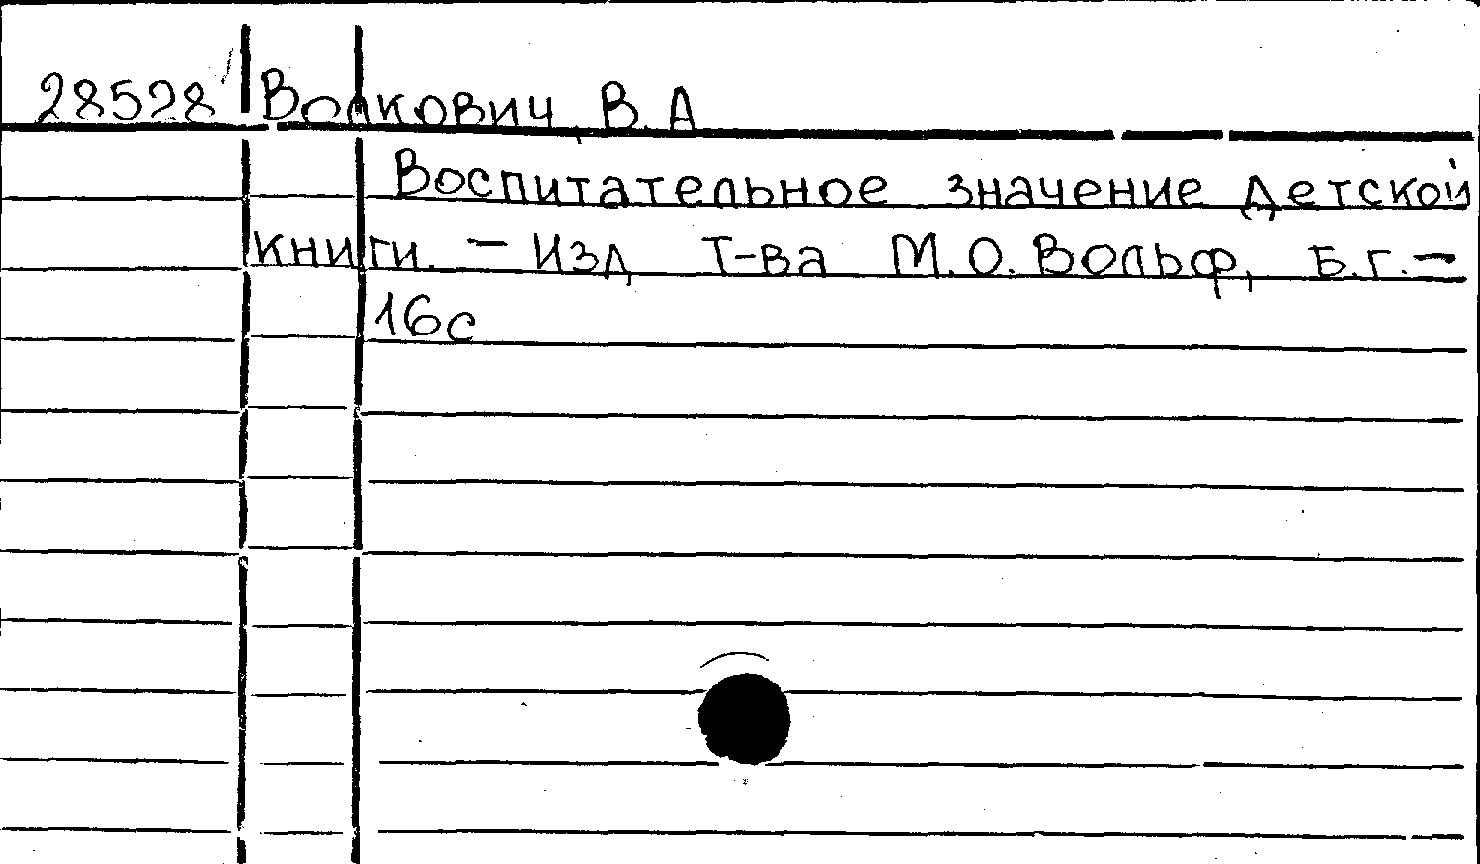 28528 Волкович, В. А
Воспитательное значение детской
книги. – Изд Т-ва М.О. Вольф, Б.г. –
16с